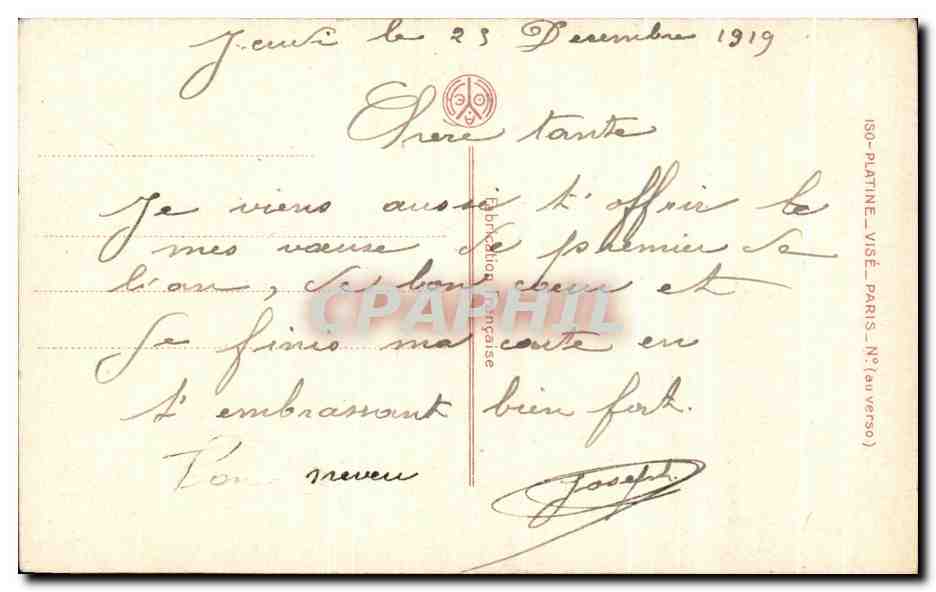 Jeudi le 25 Decembre 1919
Chere tante
Je viens aussi t'offrir le
mes vœuse de premier de
l'an, de bon cœur et
Je finis ma carte en
t'embrassant bien fort.
Ton neveu Joseph.
Fabrication Française
ISO-PLATINE_VISÉ_PARIS_Nº.(au verso)
CPAPHIL